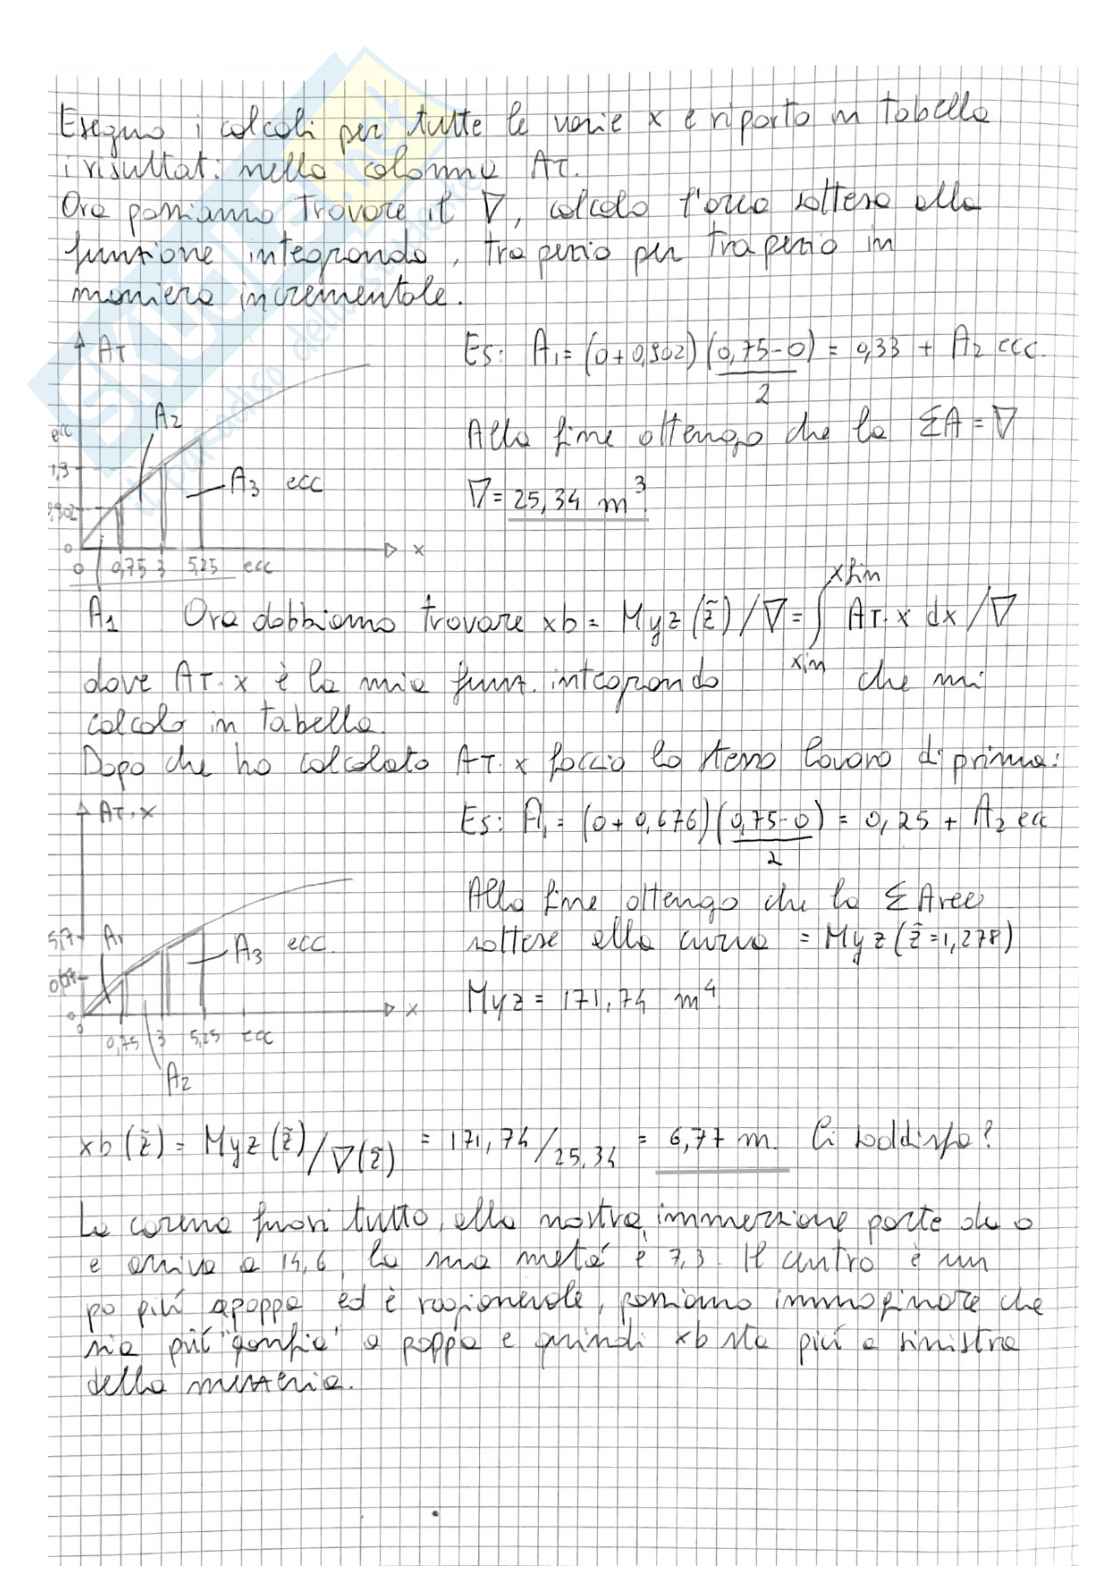 Eseguo i calcoli per tutte le varie x e riporto in tabella
i risultati nella colonna AT.
Ora possiamo trovare il ∇, calcolo l'area sottesa alla
funzione integrando, trapezio per trapezio in
maniera incrementale.
AT
A2
ecc
1,3
A3 ecc
0,902
0
0 0,75 3 5,25 ecc
x
A1
Es: A1 = (0+0,902)(0,75-0)/2 = 0,33 + A2 ecc.
Alla fine ottengo che la ΣA = ∇
∇ = 25,34 m³
Ora dobbiamo trovare xb = Myz(z̃)/∇ = ∫ xin xfin AT·x dx/∇
dove AT·x è la mia funz. integrando che mi
calcolo in tabella.
Dopo che ho calcolato AT·x faccio lo stesso lavoro di prima:
AT·x
Es: A1 = (0+0,676)(0,75-0)/2 = 0,25 + A2 ecc
Alla fine ottengo che la ΣAree
sottese alla curva = Myz(z̃=1,278)
Myz = 171,74 m⁴
5,7
A1
A3 ecc.
0
0
0,75 3 5,25 ecc
x
A2
xb(z̃) = Myz(z̃)/∇(z̃) = 171,74/25,34 = 6,77 m. Ci soddisfa?
La carena fuori tutto, alla nostra immersione parte da 0
e arriva a 14,6, la sua metà è 7,3. Il centro è un
po più a poppa ed è ragionevole, possiamo immaginare che
sia più "gonfia" a poppa e quindi xb sta più a sinistra
della mezzeria.